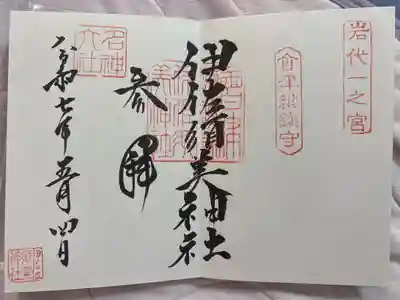 岩代一之宮
會津総鎮守
伊佐須美神社
参拝
名神大社
令和七年五月四日